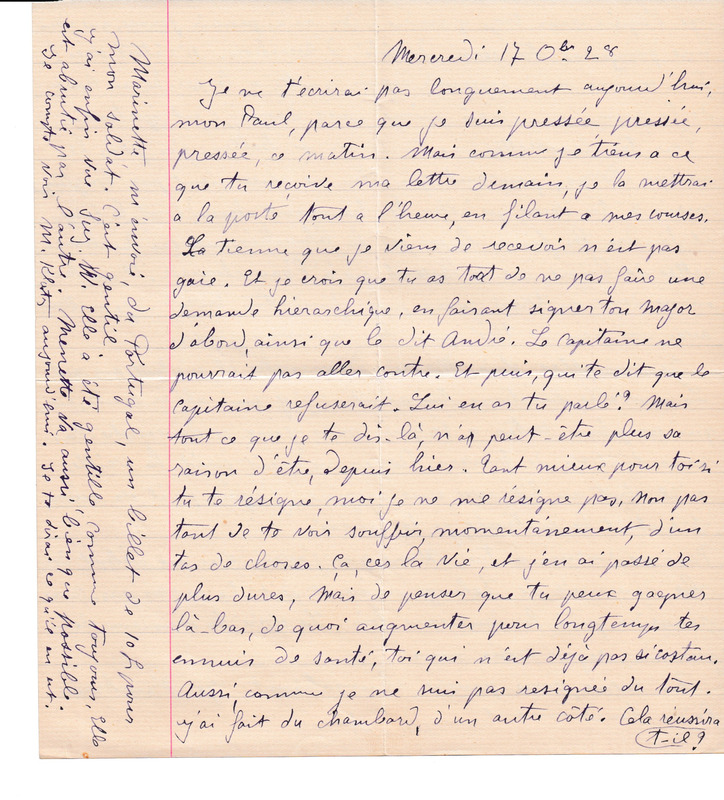 Mercredi 17 Obre 28
Je ne t'écrirai pas longuement aujourd'hui,
mon Paul, parce que je suis pressée, pressée,
pressée, ce matin. Mais comme je tiens a ce
que tu reçoive ma lettre demain, je la mettrai
a la poste tout a l'heure, en filant a mes courses.
La tienne que je viens de recevoir n'est pas
gaie. Et je crois que tu as tort de ne pas faire une
demande hierarchique, en faisant signer ton major
d'abord, ainsi que le dit André. Le capitaine ne
pourrait pas aller contre. Et puis, qui te dit que le
capitaine refuserait. Lui en as tu parlé? Mais
tout ce que je te dis-là, n'a peut-être plus sa
raison d'être, depuis hier. Tant mieux pour toi si
tu te résigne, moi je ne me résigne pas, non pas
tant de te voir souffrir, momentanément, d'un
tas de choses. Ça, ces la vie, et j'en ai passé de
plus dures, Mais de penser que tu peux gagner
là-bas, de quoi augmenter pour longtemps tes
ennuis de santé, toi qui n'est déjà pas si costau.
Aussi, comme je ne suis pas resignée du tout.
j'ai fait du chambard, d'un autre côté. Cela réussira
t-il?
Marinette m'envoi, du Portugal, un billet de 10 f pour
mon soldat. C'est gentil.
j'ai enfin vue W. Elle a été gentille comme toujours, Elle
est abrutie par l'autre. Menette va aussi bien que possible.
Je compte voir M. Klotz aujourd'hui. Je te dirai ce qu'il en est.